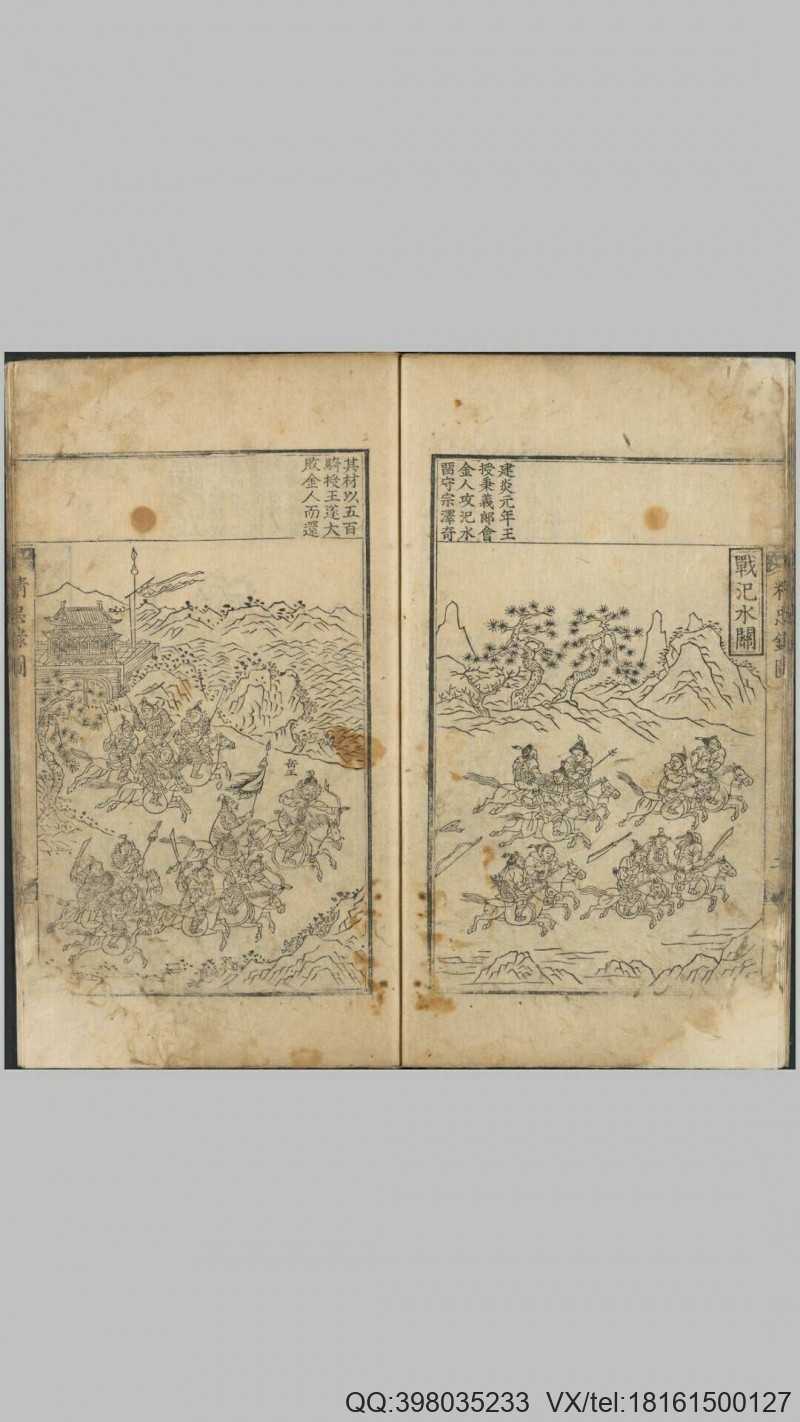 戰汜水關
建炎元年王
授秉義郎會
金人攻汜水
留守宗澤奇
其材以五百
騎授王遂大
敗金人而還
岳王
精忠錄圖
二
精忠錄圖
QQ:398035233 VX/tel:18161500127